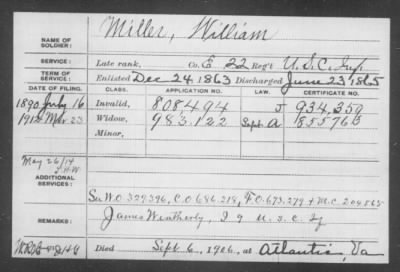 Miller, William
NAME OF SOLDIER:
SERVICE: Late rank, Co. E 22 Reg't U.S.C. Inf.
TERM OF SERVICE: Enlisted Dec 24 1863 Discharged June 23 1865
DATE OF FILING. CLASS. APPLICATION NO. LAW. CERTIFICATE NO.
1890 July 16 Invalid, 808494 J 934,359
1912 Mar 23 Widow, 983.122 Sept. A 855763
Minor,
May 26/14
ADDITIONAL SERVICES:
See W.O 329396, C.O 686.218, F.O 673.279 + M.C. 209565
REMARKS: James Weatherly, I 9 U.S.C.
Died Sept. 6, 1906, at Atlantic, Va